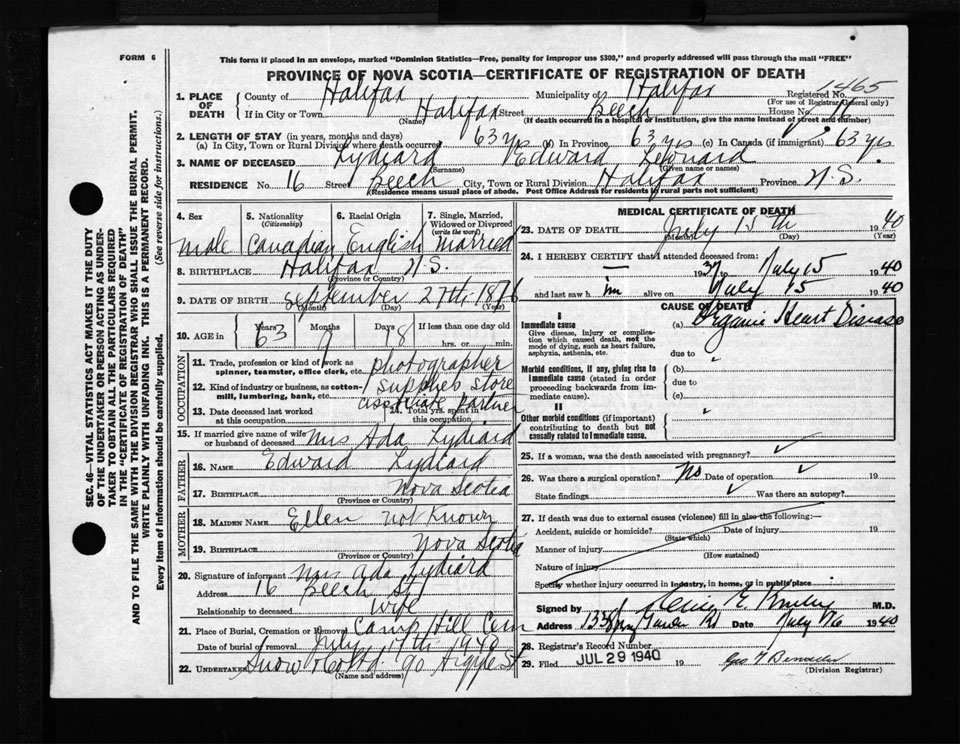 FORM 6
This form if placed in an envelope, marked "Dominion Statistics—Free, penalty for improper use $300," and properly addressed will pass through the mail "FREE"
PROVINCE OF NOVA SCOTIA—CERTIFICATE OF REGISTRATION OF DEATH
1. PLACE OF DEATH
County of Halifax Municipality of Halifax Registered No. 1465
(For use of Registrar General only)
If in City or Town Halifax Street Beech House No. 16
(Name) (If death occurred in a hospital or institution, give the name instead of street and number)
2. LENGTH OF STAY (in years, months and days)
(a) In City, Town or Rural Division where death occurred 63 yrs (b) In Province 63 yrs (c) In Canada (if immigrant) 63 yrs.
3. NAME OF DECEASED Lydiard Edward Leonard
(Surname) (Given name or names)
RESIDENCE No. 16 Street Beech City, Town or Rural Division Halifax Province N.S.
(Residence means usual place of abode. Post Office Address for residents in rural parts not sufficient)
4. Sex male
5. Nationality (Citizenship) Canadian
6. Racial Origin English
7. Single, Married, Widowed or Divorced (write the word) married
8. BIRTHPLACE Halifax N.S.
(Province or Country)
9. DATE OF BIRTH September 27th, 1876
(Month) (Day) (Year)
10. AGE in Years 63 Months 9 Days 18 If less than one day old
hrs. or min.
OCCUPATION
11. Trade, profession or kind of work as spinner, teamster, office clerk, etc. photographer
12. Kind of industry or business, as cotton-mill, lumbering, bank, etc. supplies store
associate partner
13. Date deceased last worked at this occupation
14. Total yrs. spent in this occupation
15. If married give name of wife or husband of deceased Mrs Ada Lydiard
FATHER
16. NAME Edward Lydiard
17. BIRTHPLACE Nova Scotia
(Province or Country)
MOTHER
18. MAIDEN NAME Ellen not Known
19. BIRTHPLACE Nova Scotia
(Province or Country)
20. Signature of informant Mrs Ada Lydiard
Address 16 Beech St
Relationship to deceased Wife
21. Place of Burial, Cremation or Removal Camp Hill Cem
Date of burial or removal July 17th 1940
22. UNDERTAKER Snow & Co Ltd. 90 Argyle St
(Name and address)
MEDICAL CERTIFICATE OF DEATH
23. DATE OF DEATH July 15th 1940
(Month) (Day) (Year)
24. I HEREBY CERTIFY that I attended deceased from:
— 1937 to July 15 1940
and last saw h im alive on July 15 1940
CAUSE OF DEATH
I
Immediate cause (a) Organic Heart Disease
Give disease, injury or complication which caused death, not the mode of dying, such as heart failure, asphyxia, asthenia, etc.
due to
Morbid conditions, if any, giving rise to immediate cause (stated in order proceeding backwards from immediate cause).
(b)
due to
(c)
II
Other morbid conditions (if important) contributing to death but not causally related to immediate cause.
25. If a woman, was the death associated with pregnancy?
26. Was there a surgical operation? No Date of operation 19
State findings Was there an autopsy?
27. If death was due to external causes (violence) fill in also the following:—
Accident, suicide or homicide? Date of injury 19
(State which)
Manner of injury
(How sustained)
Nature of injury
Specify whether injury occurred in industry, in home, or in public place
Signed by M.D.
Address Date July 16 1940
28. Registrar's Record Number
29. Filed JUL 29 1940 19
(Division Registrar)
SEC. 46—VITAL STATISTICS ACT MAKES IT THE DUTY
OF THE UNDERTAKER OR PERSON ACTING AS UNDER-
TAKER TO OBTAIN ALL THE PARTICULARS REQUIRED
IN THE "CERTIFICATE OF REGISTRATION OF DEATH"
AND TO FILE THE SAME WITH THE DIVISION REGISTRAR WHO SHALL ISSUE THE BURIAL PERMIT.
WRITE PLAINLY WITH UNFADING INK. THIS IS A PERMANENT RECORD.
Every item of information should be carefully supplied. (See reverse side for instructions.)